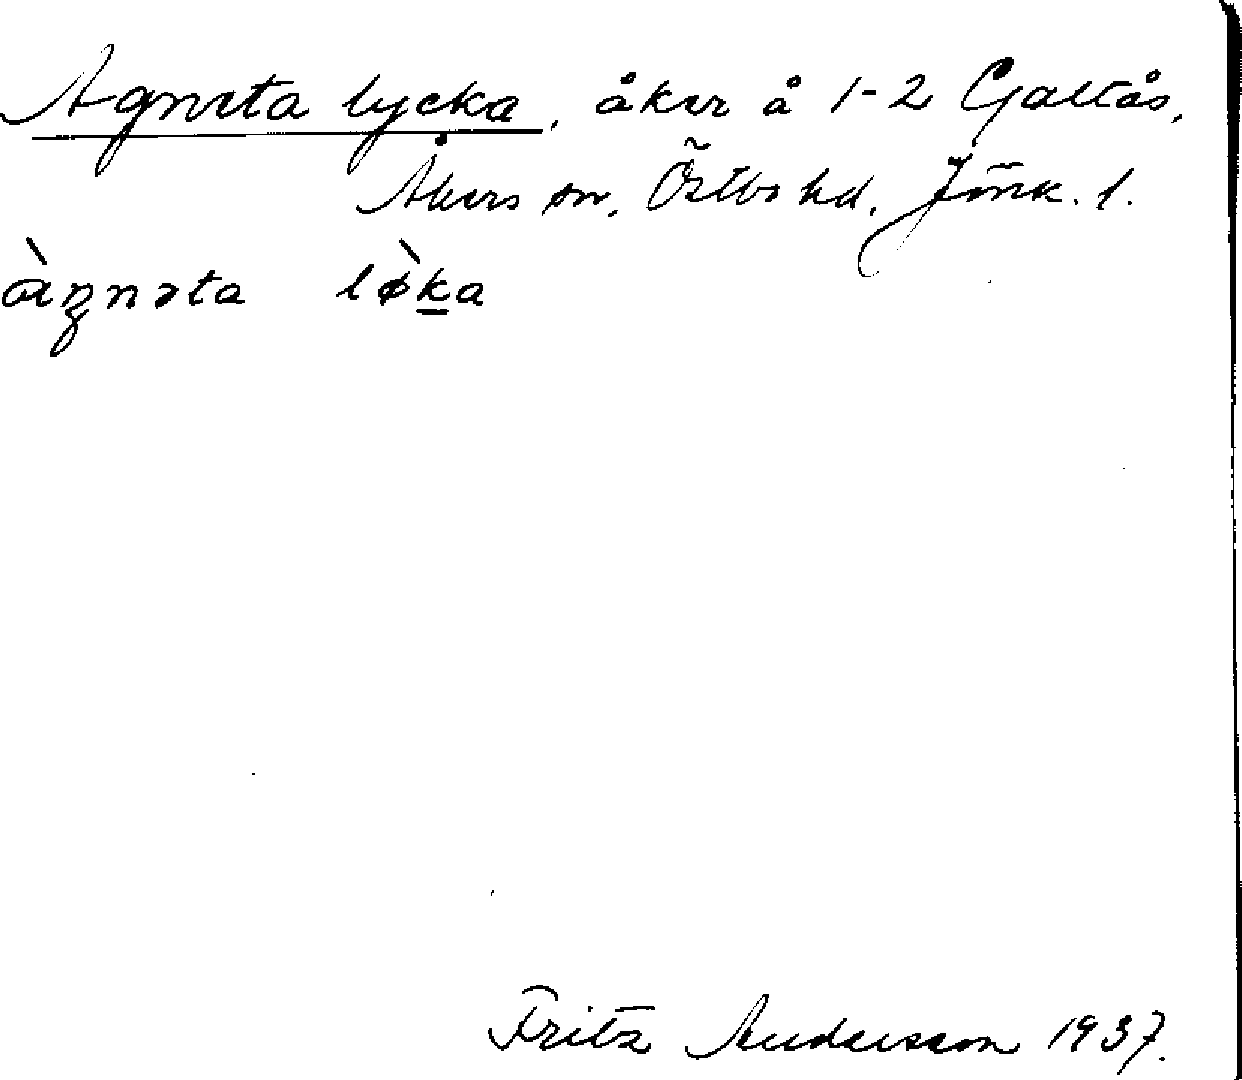 Agneta lycka, åker å 1-2 Galtås,
Åkers sn, Östbo hd, Jönk. l.
àŋnəta lø̀ka
Fritz Andersson 1937.